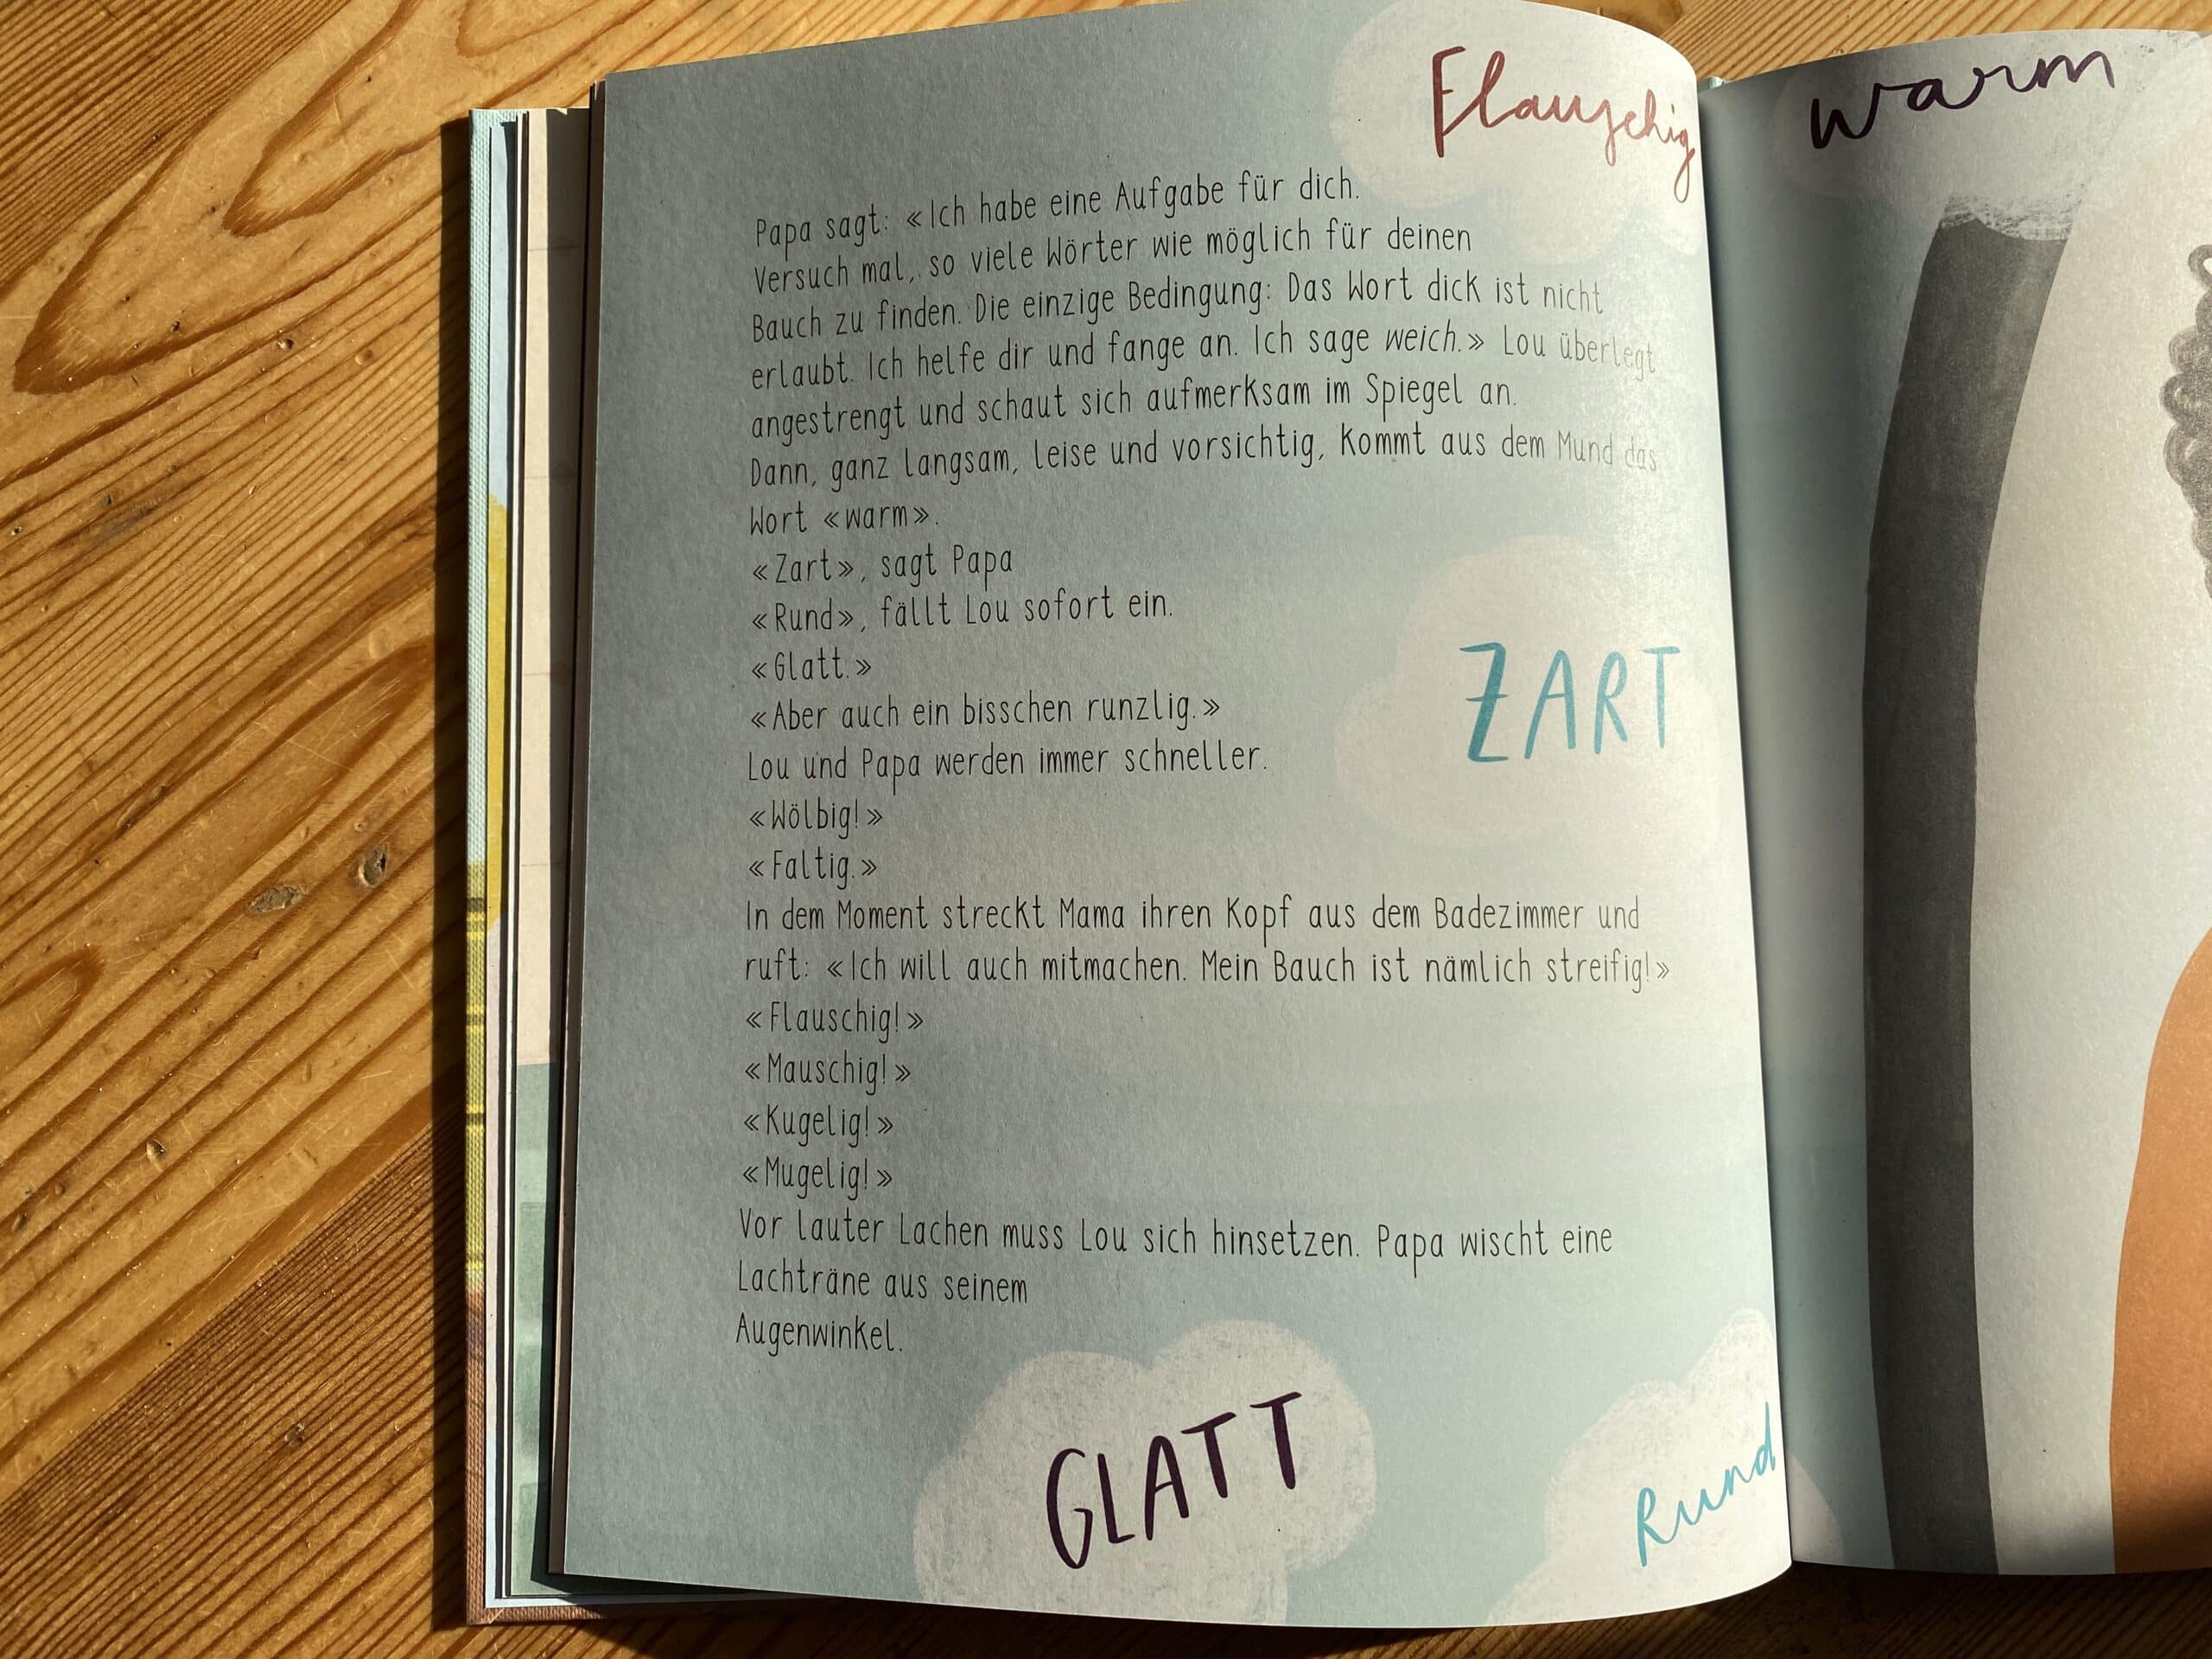 Flauschig
warm
Papa sagt: «Ich habe eine Aufgabe für dich.
Versuch mal, so viele Wörter wie möglich für deinen
Bauch zu finden. Die einzige Bedingung: Das Wort dick ist nicht
erlaubt. Ich helfe dir und fange an. Ich sage weich.» Lou überlegt
angestrengt und schaut sich aufmerksam im Spiegel an.
Dann, ganz langsam, leise und vorsichtig, kommt aus dem Mund das
Wort «warm».
«Zart», sagt Papa
«Rund», fällt Lou sofort ein.
«Glatt.»
«Aber auch ein bisschen runzlig.»
Lou und Papa werden immer schneller.
«Wölbig!»
«Faltig.»
In dem Moment streckt Mama ihren Kopf aus dem Badezimmer und
ruft: «Ich will auch mitmachen. Mein Bauch ist nämlich streifig!»
«Flauschig!»
«Mauschig!»
«Kugelig!»
«Mugelig!»
Vor lauter Lachen muss Lou sich hinsetzen. Papa wischt eine
Lachträne aus seinem
Augenwinkel.
ZART
GLATT
Rund